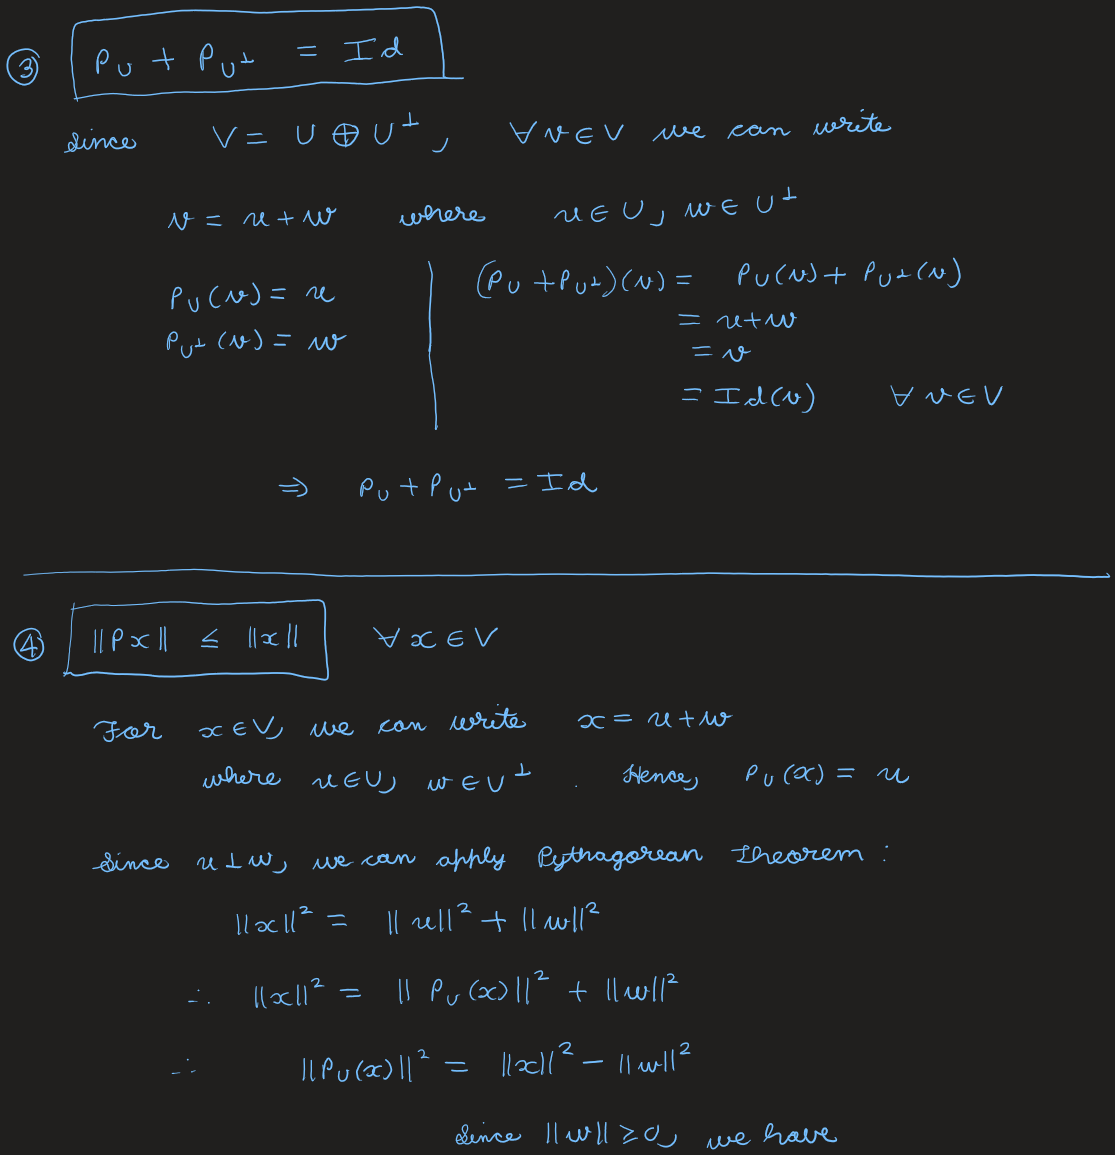 ③ P_U + P_U⊥ = Id
Since V = U ⊕ U⊥, ∀ v ∈ V we can write
v = u + w where u ∈ U, w ∈ U⊥
P_U(v) = u
P_U⊥(v) = w
(P_U + P_U⊥)(v) = P_U(v) + P_U⊥(v)
= u + w
= v
= Id(v) ∀ v ∈ V
⇒ P_U + P_U⊥ = Id
④ ||Px|| ≤ ||x|| ∀ x ∈ V
For x ∈ V, we can write x = u + w
where u ∈ U, w ∈ U⊥. Hence, P_U(x) = u
Since u ⊥ w, we can apply Pythagorean Theorem:
||x||² = ||u||² + ||w||²
∴ ||x||² = ||P_U(x)||² + ||w||²
∴ ||P_U(x)||² = ||x||² − ||w||²
Since ||w|| ≥ 0, we have